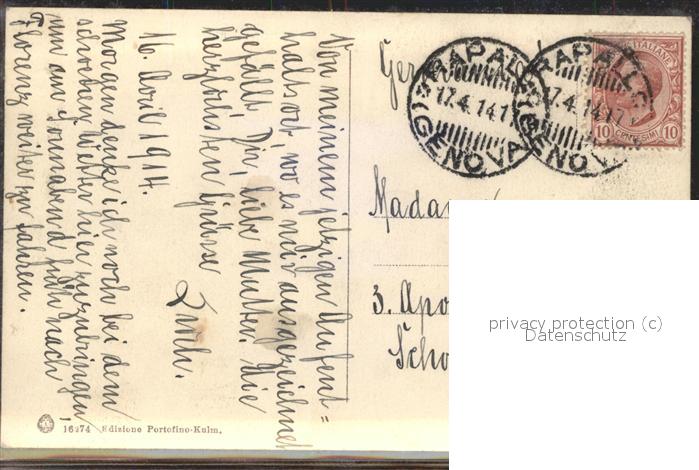 Von meinem jetzigen Aufent=
haltsort, wo es mir ausgezeichnet
gefällt Dir, liebe Mutter, die
herzlichsten Grüsse
Emb.
16. April 1914.
Morgen denke ich noch bei dem
schönen Wetter hier zuzubringen,
um am Sonnabend früh nach
Florenz weiter zu fahren.
16274 Edizione Portofino-Kulm.
RAPALLO
17.4.14.17
(GENOVA)
RAPALLO
17.4.14.17
(GENOVA)
ITALIANE
10 CENTESIMI 10
Mada
3. Apo
Scho
privacy protection (c)
Datenschutz